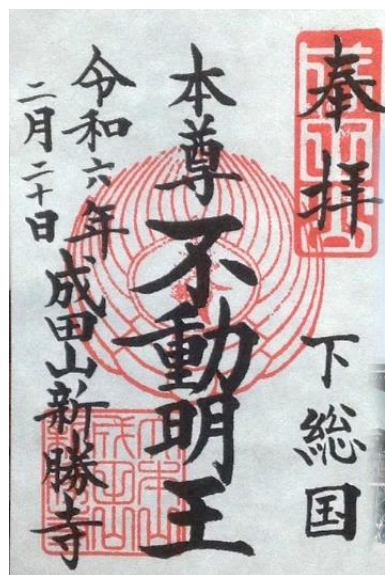 奉拝
下総国
本尊不動明王
令和六年
二月二十日
成田山新勝寺